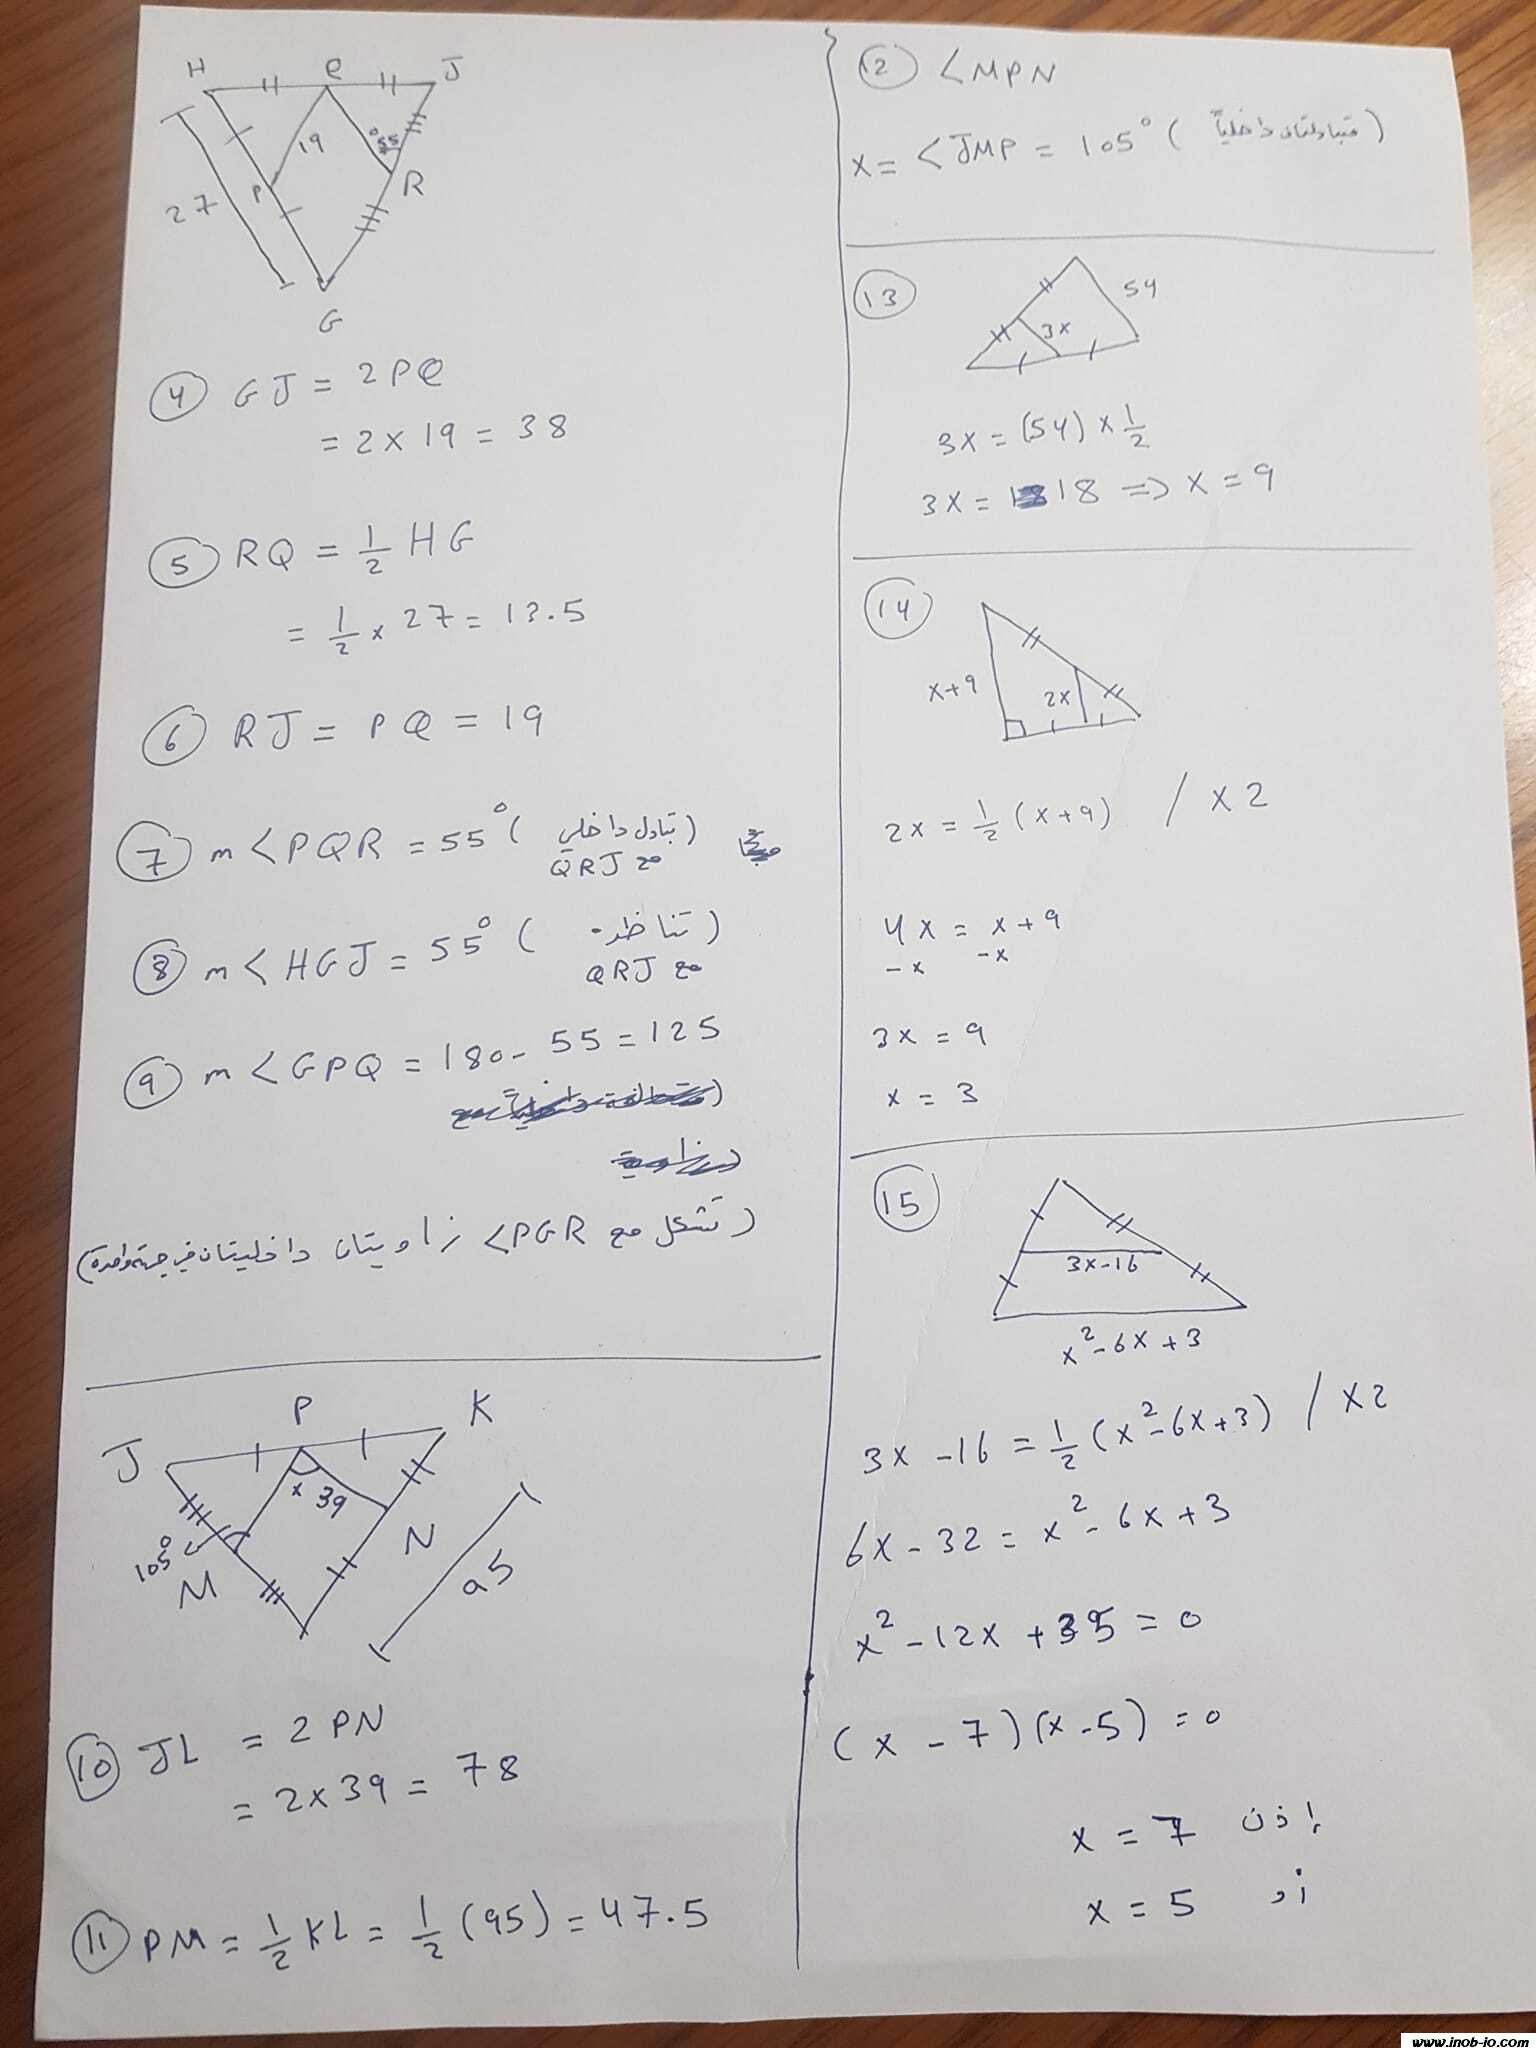 H Q J
19 55°
P R
27
G
④ GJ = 2PQ
= 2 × 19 = 38
⑤ RQ = 1/2 HG
= 1/2 × 27 = 13.5
⑥ RJ = PQ = 19
⑦ m<PQR = 55° (تبادل داخلي)
مع QRJ
⑧ m<HGJ = 55° (تناظر)
مع QRJ
⑨ m<GPQ = 180 - 55 = 125
(تشكل مع <PGR زاويتان داخليتان في جهة واحدة)
J P K
x 39
105°
M N
95
⑩ JL = 2PN
= 2×39 = 78
⑪ PM = 1/2 KL = 1/2 (95) = 47.5
⑫ <MPN
x = <JMP = 105° (متبادلتان داخلياً)
⑬
54
3x
3x = (54) × 1/2
3x = 18 => x = 9
⑭
x+9 2x
2x = 1/2 (x+9) / ×2
4x = x+9
-x -x
3x = 9
x = 3
⑮
3x-16
x²-6x+3
3x-16 = 1/2 (x²-6x+3) / ×2
6x-32 = x²-6x+3
x²-12x+35 = 0
(x-7)(x-5) = 0
إذن x = 7
أو x = 5
www.inob-jo.com